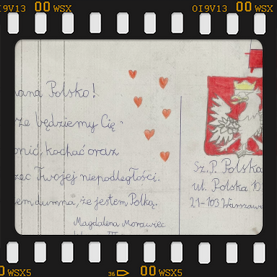 I9V13 00 WSX 0I9V13 00 WSX
ana Polsko!
ze będziemy Cię
onić, kochać oraz
zec Twojej niepodległości.
em dumna, że jestem Polką.
Magdalena Morawiec
Sz. P. Polska
ul. Polska 18
21-103 Warszawa
WSX5 36 00 WSX5